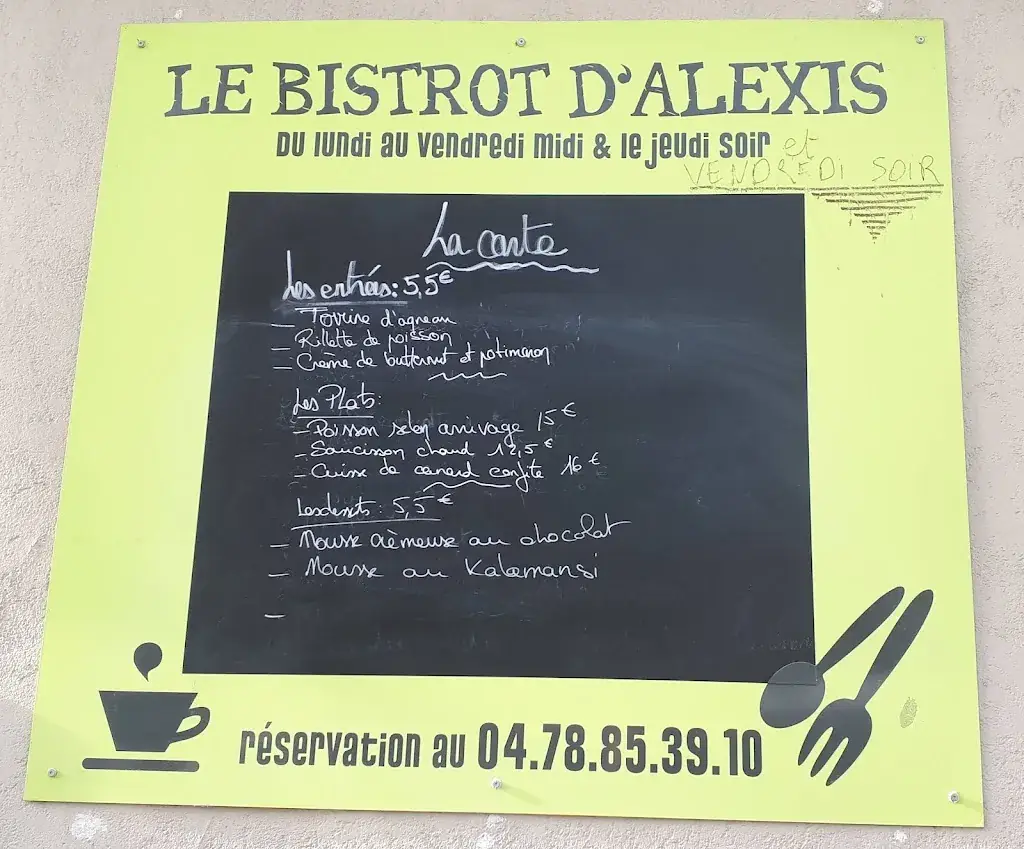 LE BISTROT D'ALEXIS
DU lUNDi AU VENDREDi MiDi & lE jEUDi SOiR et
VENDREDI SOIR
La carte
Les entrées: 5,5€
_ Terrine d'agneau
_ Rillette de poisson
_ Crème de butternut et potimaron
Les Plats:
- Poisson selon arrivage 15€
- Saucisson chaud 12,5€
- Cuisse de canard confite 16€
Les desserts: 5,5€
_ Mousse crèmeuse au chocolat
_ Mousse au Kalamansi
_
réservation au 04.78.85.39.10